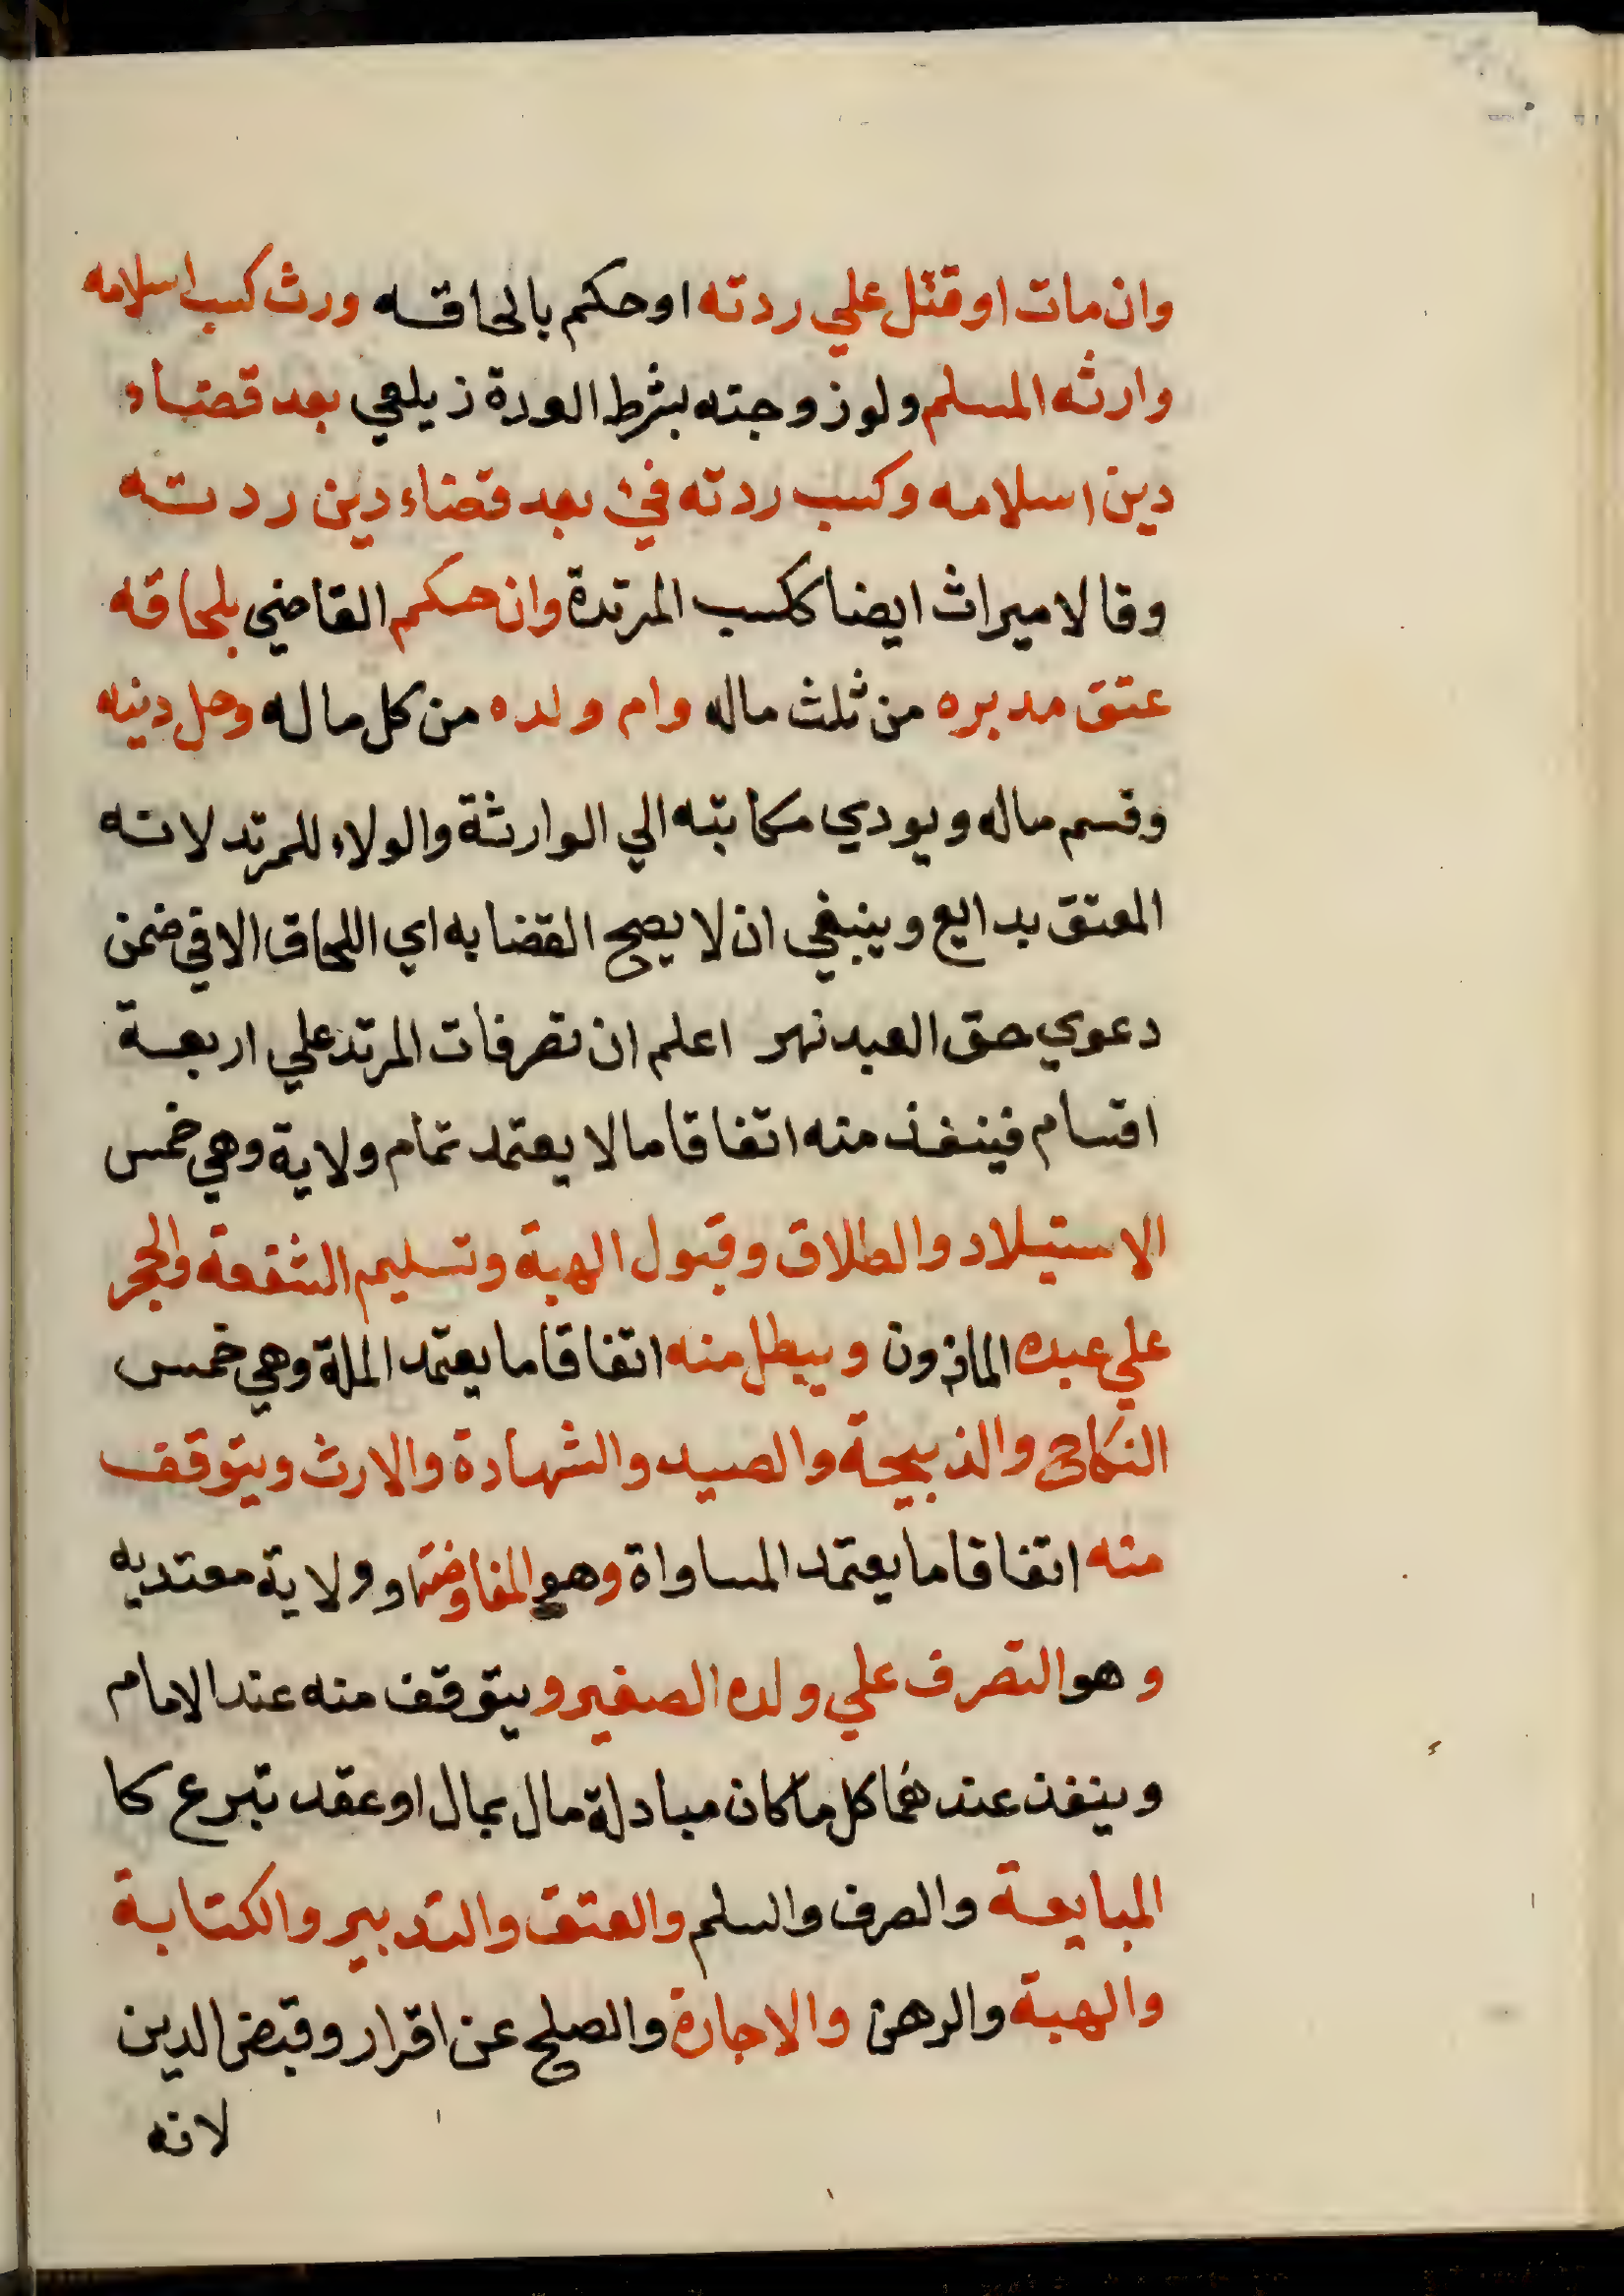 وان مات او قتل علي ردته او حكم بالحاقه ورث كسب اسلامه
وارثه المسلم ولو زوجته بشرط العدة زيلعي بعد قضاء
دين اسلامه وكسب ردته فيئ بعد قضاء دين ردته
وقالا ميراث ايضا ككسب المرتدة وان حكم القاضي بلحاقه
عتق مدبره من ثلث ماله وام ولده من كل ماله وحل دينه
وقسم ماله ويودي مكاتبته الي الوارثة والولاء للمرتد لانه
المعتق بدايع وينبغي ان لا يصح القضا به اي اللحاق الا في ضمن
دعوي حق العبد نهر اعلم ان تصرفات المرتد علي اربعة
اقسام فينفذ منه اتفاقا ما لا يعتمد تمام ولاية وهي خمس
الاستيلاد والطلاق وقبول الهبة وتسليم الشفعة والحجر
علي عبده الماذون ويبطل منه اتفاقا ما يعتمد الملة وهي خمس
النكاح والذبيحة والصيد والشهادة والارث ويتوقف
منه اتفاقا ما يعتمد المساواة وهو المفاوضة او ولاية معتد به
وهو التصرف علي ولده الصغير ويتوقف منه عند الامام
وينفذ عندهما كل ما كان مبادلة مال بمال او عقد تبرع كا
المبايعة والصرف والسلم والعتق والتدبير والكتابة
والهبة والرهن والاجارة والصلح عن اقرار وقبض الدين
لانه